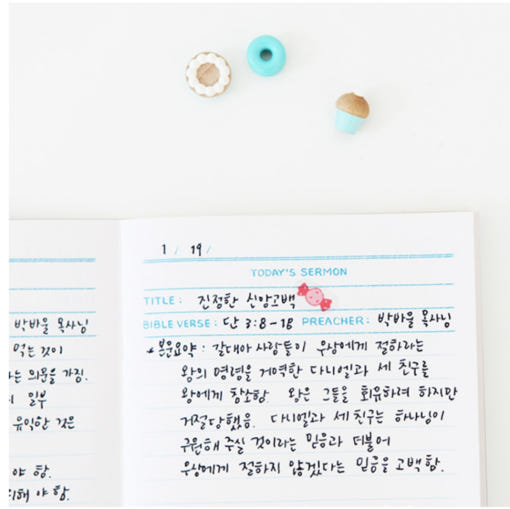 박바울 목사님
먹는 것이
는 의문을 가짐.
일부
유익한 것은
야 함.
해 야 함.
1 / 19 /
TODAY'S SERMON
TITLE : 진정한 신앙고백
BIBLE VERSE : 단 3:8-18 PREACHER : 박바울 목사님
★본문요약 : 갈대아 사람들이 우상에게 절하라는
왕의 명령을 거역한 다니엘과 세 친구를
왕에게 참소함. 왕은 그들을 회유하려 하지만
거절당했음. 다니엘과 세 친구는 하나님이
구원해 주실 것이라는 믿음과 더불어
우상에게 절하지 않겠다는 믿음을 고백함.